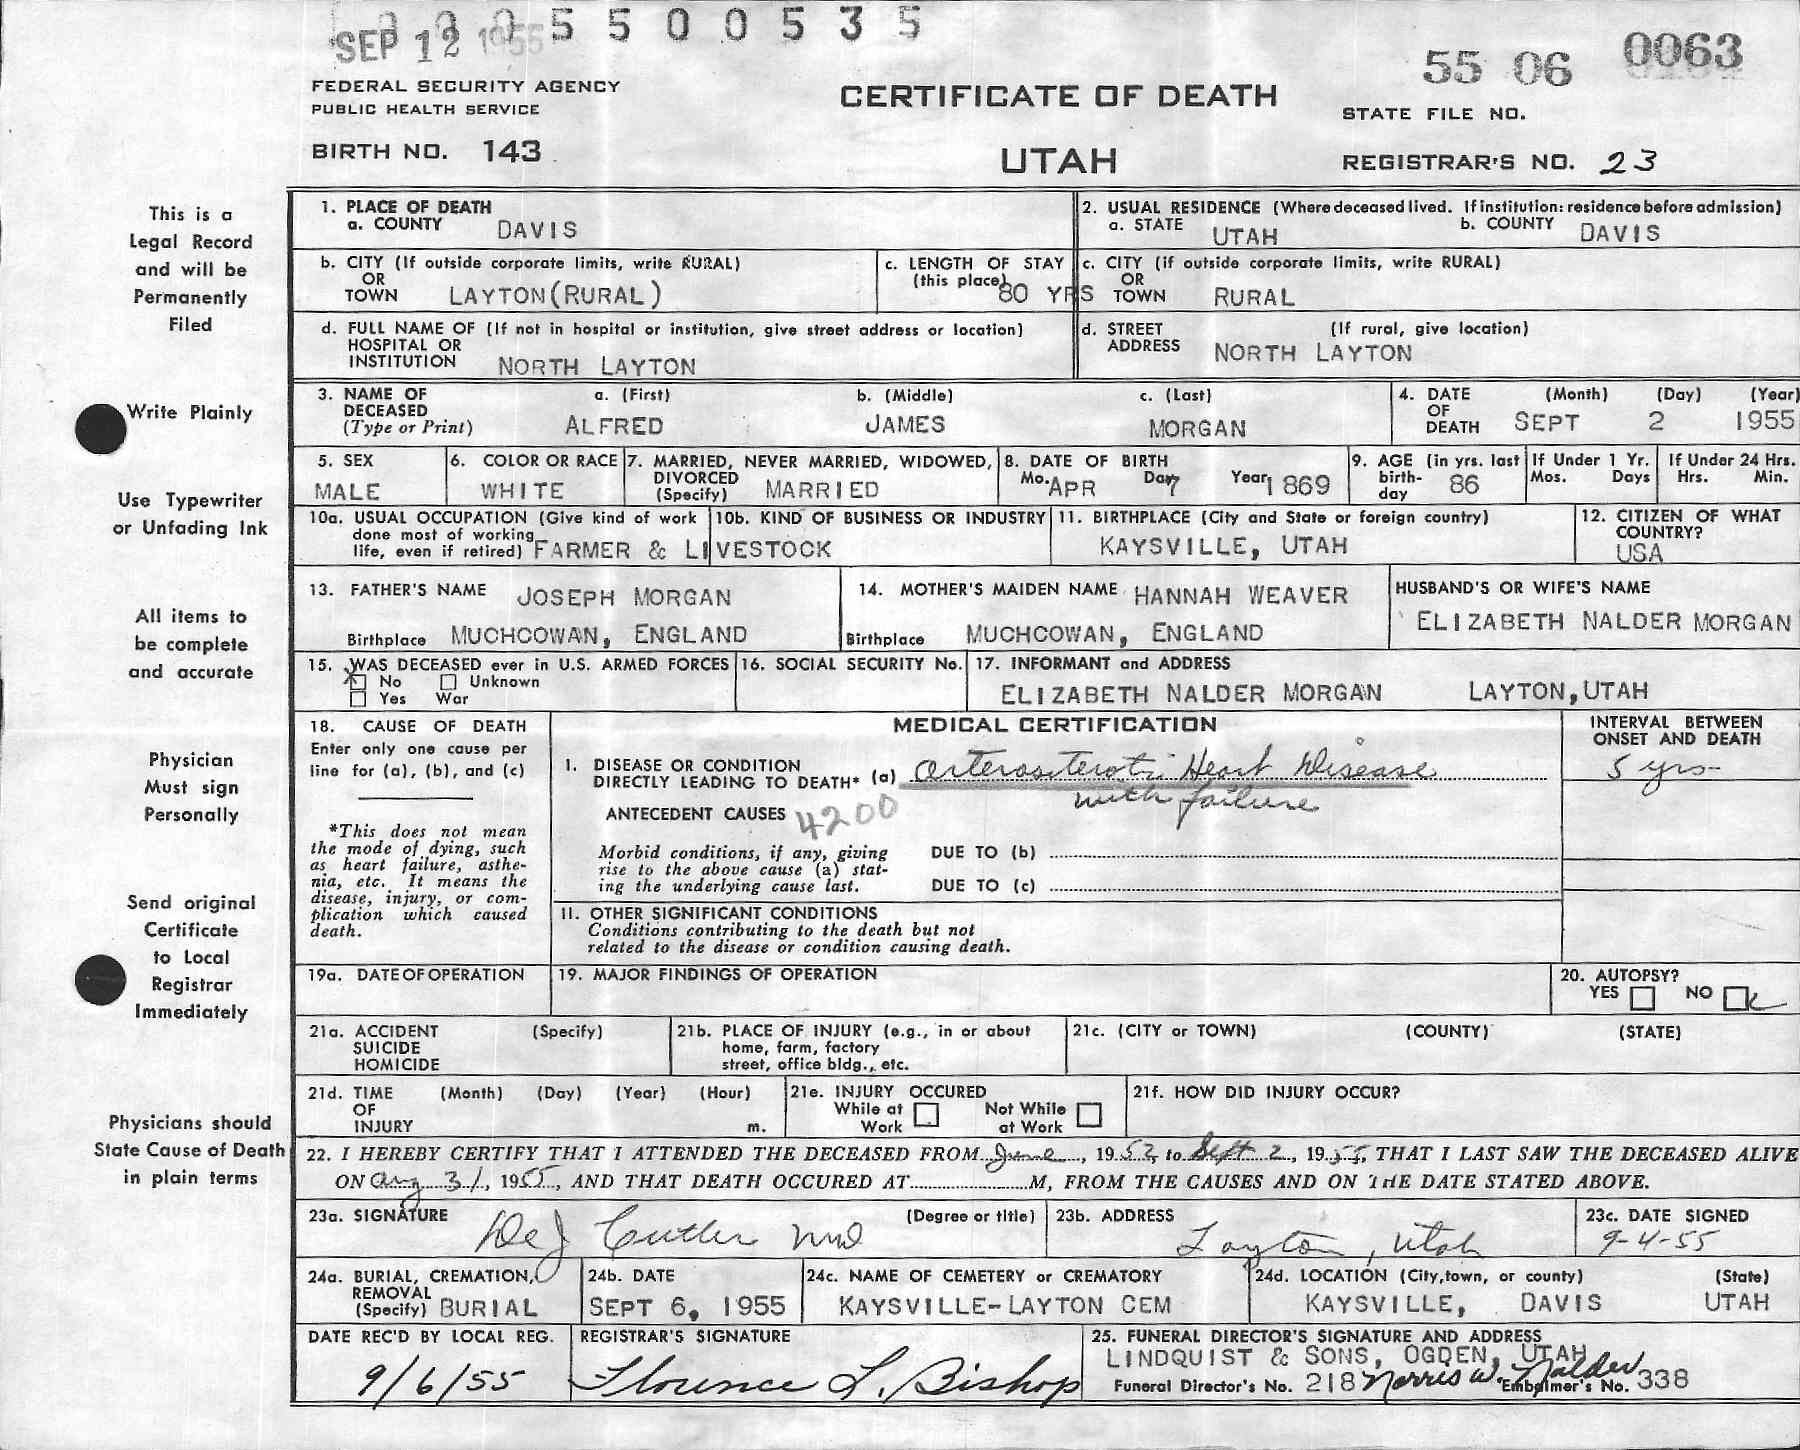 SEP 12 1955 5 5 0 0 5 3 5
55 06 0063
FEDERAL SECURITY AGENCY
PUBLIC HEALTH SERVICE
CERTIFICATE OF DEATH
STATE FILE NO.
BIRTH NO. 143
UTAH
REGISTRAR'S NO. 23
This is a
Legal Record
and will be
Permanently
Filed
Write Plainly
Use Typewriter
or Unfading Ink
All items to
be complete
and accurate
Physician
Must sign
Personally
Send original
Certificate
to Local
Registrar
Immediately
Physicians should
State Cause of Death
in plain terms
1. PLACE OF DEATH
a. COUNTY DAVIS
2. USUAL RESIDENCE (Where deceased lived. If institution: residence before admission)
a. STATE UTAH b. COUNTY DAVIS
b. CITY (If outside corporate limits, write RURAL)
OR
TOWN LAYTON(RURAL)
c. LENGTH OF STAY
(this place) 80 YRS
c. CITY (if outside corporate limits, write RURAL)
OR
TOWN RURAL
d. FULL NAME OF (If not in hospital or institution, give street address or location)
HOSPITAL OR
INSTITUTION NORTH LAYTON
d. STREET (If rural, give location)
ADDRESS NORTH LAYTON
3. NAME OF a. (First) b. (Middle) c. (Last)
DECEASED
(Type or Print) ALFRED JAMES MORGAN
4. DATE (Month) (Day) (Year)
OF
DEATH SEPT 2 1955
5. SEX
MALE
6. COLOR OR RACE
WHITE
7. MARRIED, NEVER MARRIED, WIDOWED,
DIVORCED
(Specify) MARRIED
8. DATE OF BIRTH
Mo. APR Day 7 Year 1869
9. AGE (in yrs. last
birth-
day 86
If Under 1 Yr.
Mos. Days
If Under 24 Hrs.
Hrs. Min.
10a. USUAL OCCUPATION (Give kind of work
done most of working
life, even if retired) FARMER & LIVESTOCK
10b. KIND OF BUSINESS OR INDUSTRY
11. BIRTHPLACE (City and State or foreign country)
KAYSVILLE, UTAH
12. CITIZEN OF WHAT
COUNTRY?
USA
13. FATHER'S NAME JOSEPH MORGAN
Birthplace MUCHCOWAN, ENGLAND
14. MOTHER'S MAIDEN NAME HANNAH WEAVER
Birthplace MUCHCOWAN, ENGLAND
HUSBAND'S OR WIFE'S NAME
ELIZABETH NALDER MORGAN
15. WAS DECEASED ever in U.S. ARMED FORCES
X No Unknown
Yes War
16. SOCIAL SECURITY No.
17. INFORMANT and ADDRESS
ELIZABETH NALDER MORGAN LAYTON, UTAH
18. CAUSE OF DEATH
Enter only one cause per
line for (a), (b), and (c)
*This does not mean
the mode of dying, such
as heart failure, asthe-
nia, etc. It means the
disease, injury, or com-
plication which caused
death.
MEDICAL CERTIFICATION
INTERVAL BETWEEN
ONSET AND DEATH
I. DISEASE OR CONDITION
DIRECTLY LEADING TO DEATH* (a) Heart Disease 5 yrs-
with failure
ANTECEDENT CAUSES 4200
Morbid conditions, if any, giving
rise to the above cause (a) stat-
ing the underlying cause last.
DUE TO (b)
DUE TO (c)
II. OTHER SIGNIFICANT CONDITIONS
Conditions contributing to the death but not
related to the disease or condition causing death.
19a. DATE OF OPERATION
19. MAJOR FINDINGS OF OPERATION
20. AUTOPSY?
YES NO
21a. ACCIDENT (Specify)
SUICIDE
HOMICIDE
21b. PLACE OF INJURY (e.g., in or about
home, farm, factory
street, office bldg., etc.
21c. (CITY or TOWN) (COUNTY) (STATE)
21d. TIME (Month) (Day) (Year) (Hour)
OF
INJURY m.
21e. INJURY OCCURED
While at Not While
Work at Work
21f. HOW DID INJURY OCCUR?
22. I HEREBY CERTIFY THAT I ATTENDED THE DECEASED FROM June, 1952 to Sept 2, 1955, THAT I LAST SAW THE DECEASED ALIVE
ON Aug 31, 1955, AND THAT DEATH OCCURED AT M, FROM THE CAUSES AND ON THE DATE STATED ABOVE.
23a. SIGNATURE (Degree or title)
Cutler MD
23b. ADDRESS
Layton, Utah
23c. DATE SIGNED
9-4-55
24a. BURIAL, CREMATION,
REMOVAL
(Specify) BURIAL
24b. DATE
SEPT 6, 1955
24c. NAME OF CEMETERY or CREMATORY
KAYSVILLE-LAYTON CEM
24d. LOCATION (City, town, or county) (State)
KAYSVILLE, DAVIS UTAH
DATE REC'D BY LOCAL REG.
9/6/55
REGISTRAR'S SIGNATURE
Florence L. Bishop
25. FUNERAL DIRECTOR'S SIGNATURE AND ADDRESS
LINDQUIST & SONS, OGDEN, UTAH
Funeral Director's No. 218 Norris W. Nalder Embalmer's No. 338